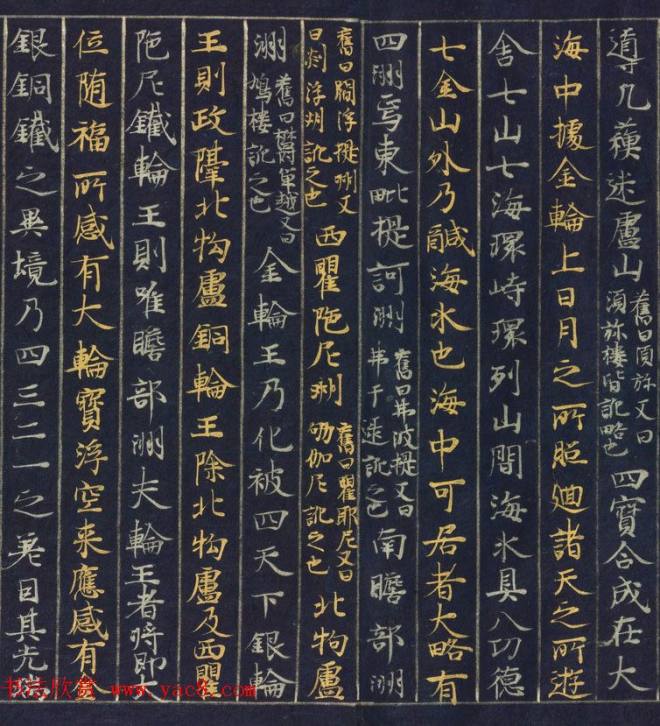 導凡蘇迷盧山舊曰須弥又曰須弥樓皆訛略也四寶合成在大
海中據金輪上日月之所照廻諸天之所遊
舍七山七海環峙環列山間海水具八功德
七金山外乃鹹海水也海中可居者大略有
四洲焉東毗提訶洲舊曰弗波提又曰弗于逮訛之也南瞻部洲
舊曰閻浮提洲又曰剡浮州訛之也西瞿陁尼洲舊曰瞿耶尼又曰劬伽尼訛之也北拘盧
洲舊曰欝單越又曰鳩樓訛之也金輪王乃化被四天下銀輪
王則政隡北拘盧銅輪王除北拘盧及西瞿
陁尼鐵輪王則唯瞻部洲夫輪王者將即大
位随福所感有大輪寶浮空来應感有金
銀銅鐵之異境乃四三二一之差目其先
书法欣赏www.yac8.com